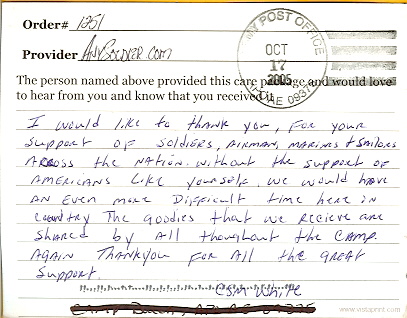 Order# 1251
Provider AnySoldier.com
ARMY POST OFFICE
OCT
17
2005
AE 0937
The person named above provided this care package and would love
to hear from you and know that you received it.
I would like to thank you, for your
support of soldiers, airman, marines + sailors
Across the Nation. Without the support of
Americans like yourself, we would have
an even more Difficult time here in
country The goodies that we recieve are
shared by all thoughout the camp.
Again Thankyou for all the great
support.
CSM White
www.vistaprint.com